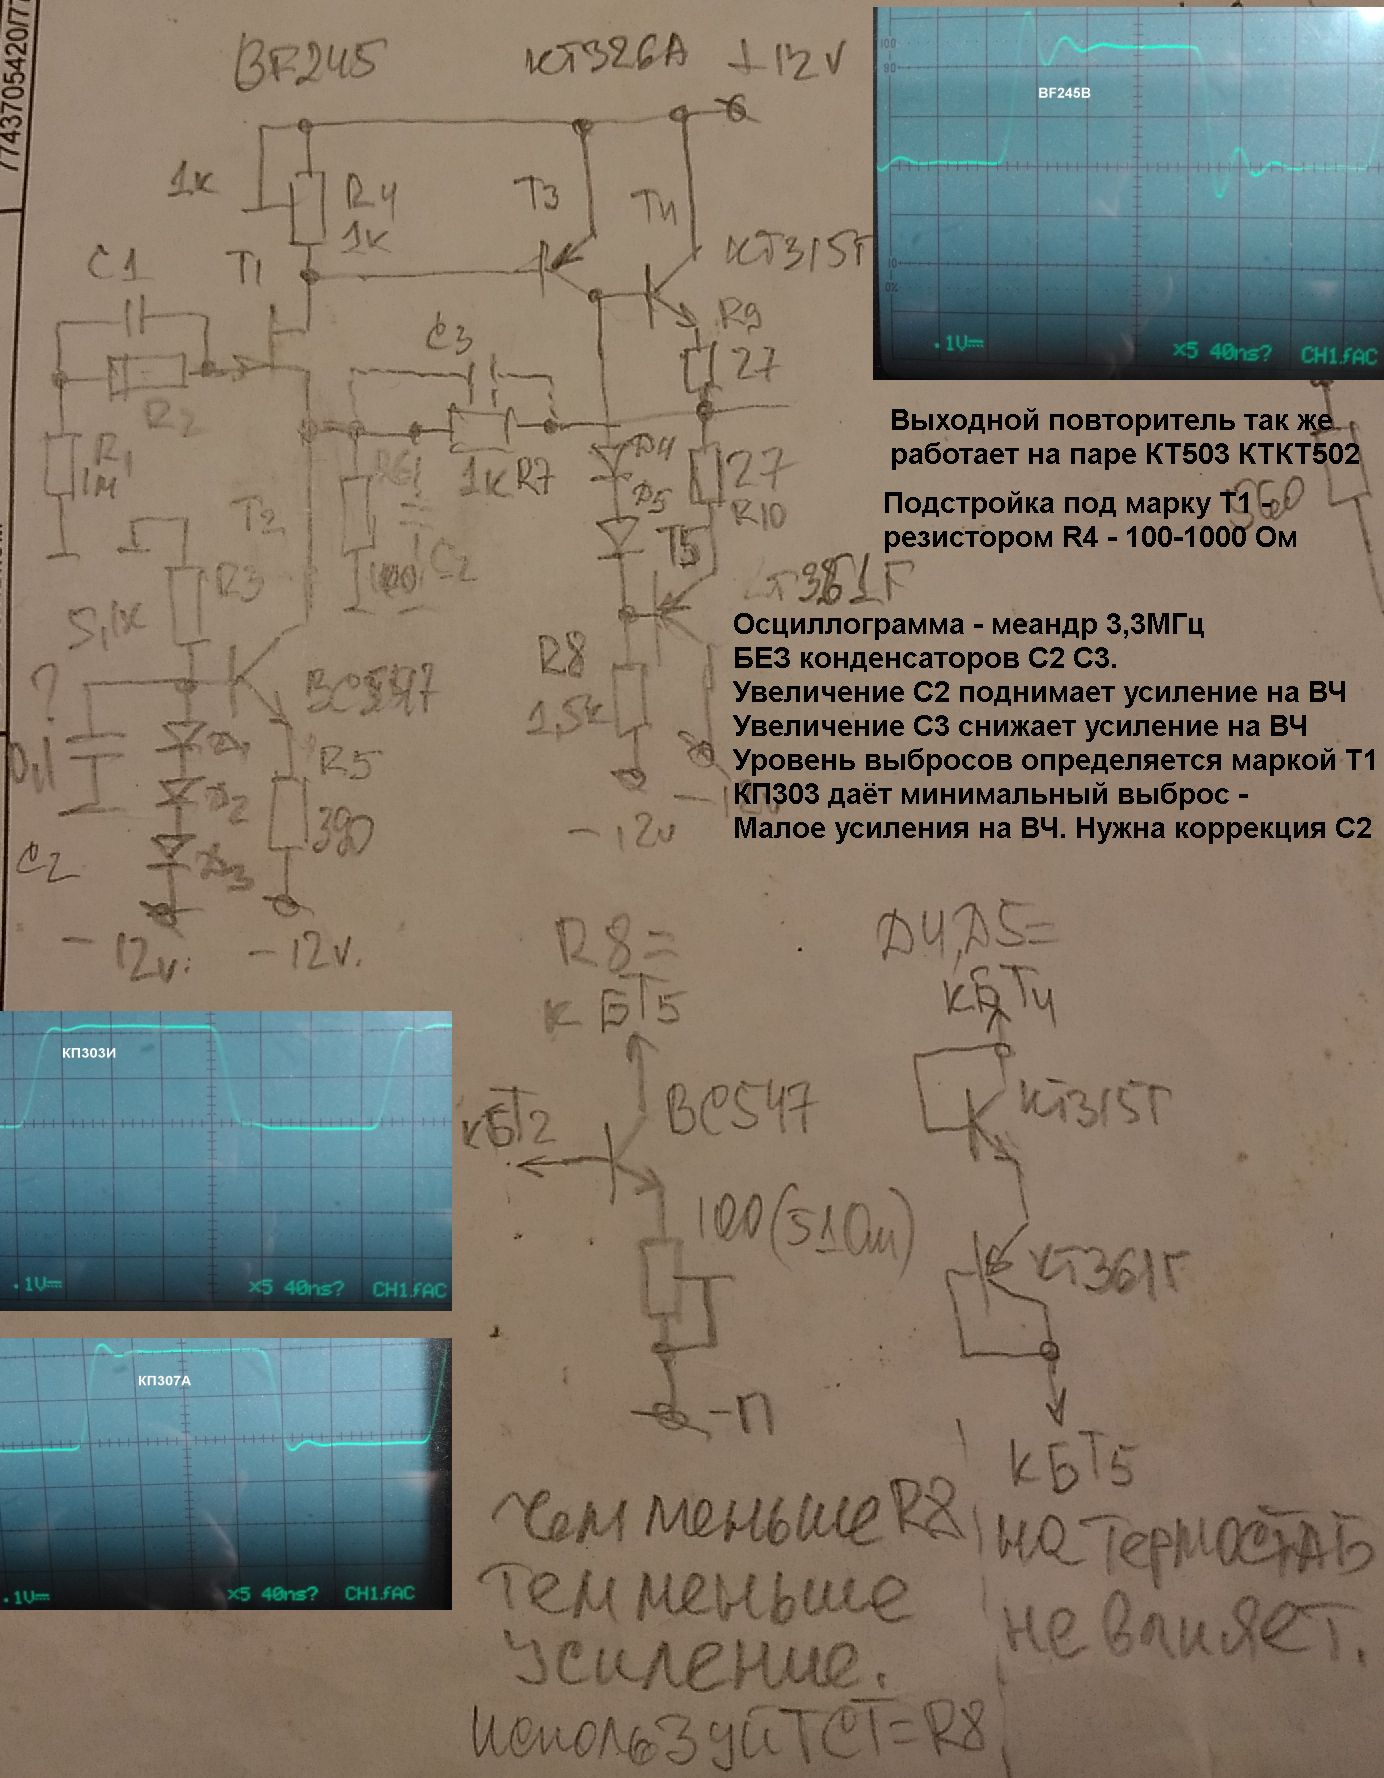 7743705420/77
BF245
КТ326А
+12V
1к
R4
1к
T3
T4
КТ315Г
C1
T1
R2
R1
1м
C3
R9
27
1кR7
R6
C2
Д4
Д5
27
R10
T5
T2
R3
5,1к
BC547
?
0,1
C2
Д1
Д2
Д3
R5
390
R8
1,5к
-12v
-12v.
-12v.
BF245B
100
90
10
0%
.1V
x5 40ns?
CH1.fAC
Выходной повторитель так же
работает на паре КТ503 КТКТ502
Подстройка под марку Т1 -
резистором R4 - 100-1000 Ом
960
Осциллограмма - меандр 3,3МГц
БЕЗ конденсаторов С2 С3.
Увеличение С2 поднимает усиление на ВЧ
Увеличение С3 снижает усиление на ВЧ
Уровень выбросов определяется маркой Т1
КП303 даёт минимальный выброс -
Малое усиления на ВЧ. Нужна коррекция С2
КП303И
.1V
x5 40ns?
CH1.fAC
КП307А
.1V
x5 40ns?
CH1.fAC
R8=
к БТ5
кБТ2
BC547
100(510м)
-П
Д4,Д5=
кБТ4
КТ315Г
КТ361Г
к БТ5
Чем меньше R8
тем меньше
усиление.
Используй ТСТ=R8
на термостаб
не влияет.